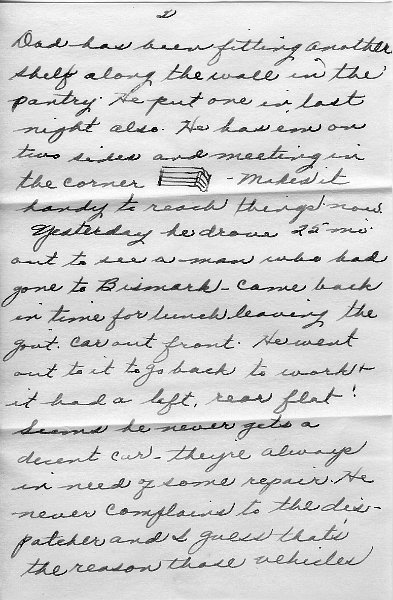 2
Dad has been fitting another
shelf along the wall in the
pantry. He put one in last
night also. He has em on
two sides and meeting in
the corner - Makes it
handy to reach things now.
Yesterday he drove 25 mi.
out to see a man who had
gone to Bismark - came back
in time for lunch leaving the
govt. car out front. He went
out to it to go back to work +
it had a left, rear flat!
Seems he never gets a
decent car - they're always
in need of some repair. He
never complains to the dis-
patcher and I guess that's
the reason those vehicles